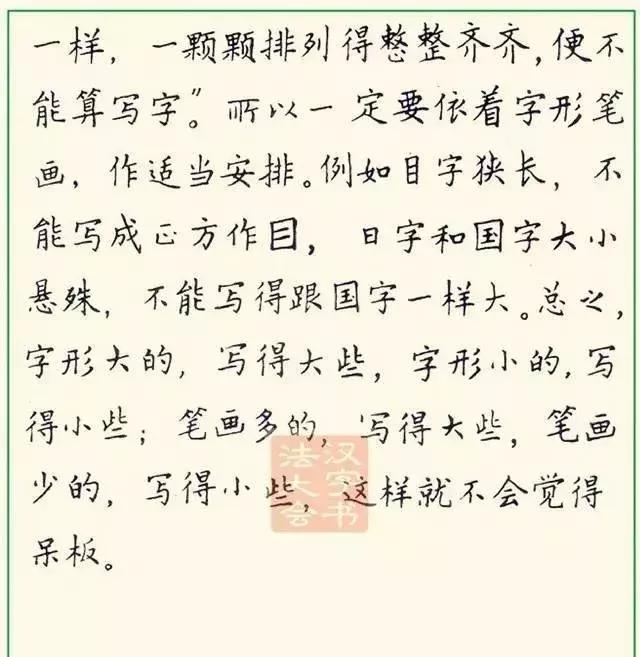 一样，一颗颗排列得整整齐齐，便不
能算写字”。所以一定要依着字形笔
画，作适当安排。例如目字狭长，不
能写成正方作目，日字和国字大小
悬殊，不能写得跟国字一样大。总之，
字形大的，写得大些，字形小的，写
得小些；笔画多的，写得大些，笔画
少的，写得小些，这样就不会觉得
呆板。
汉字书
法大会